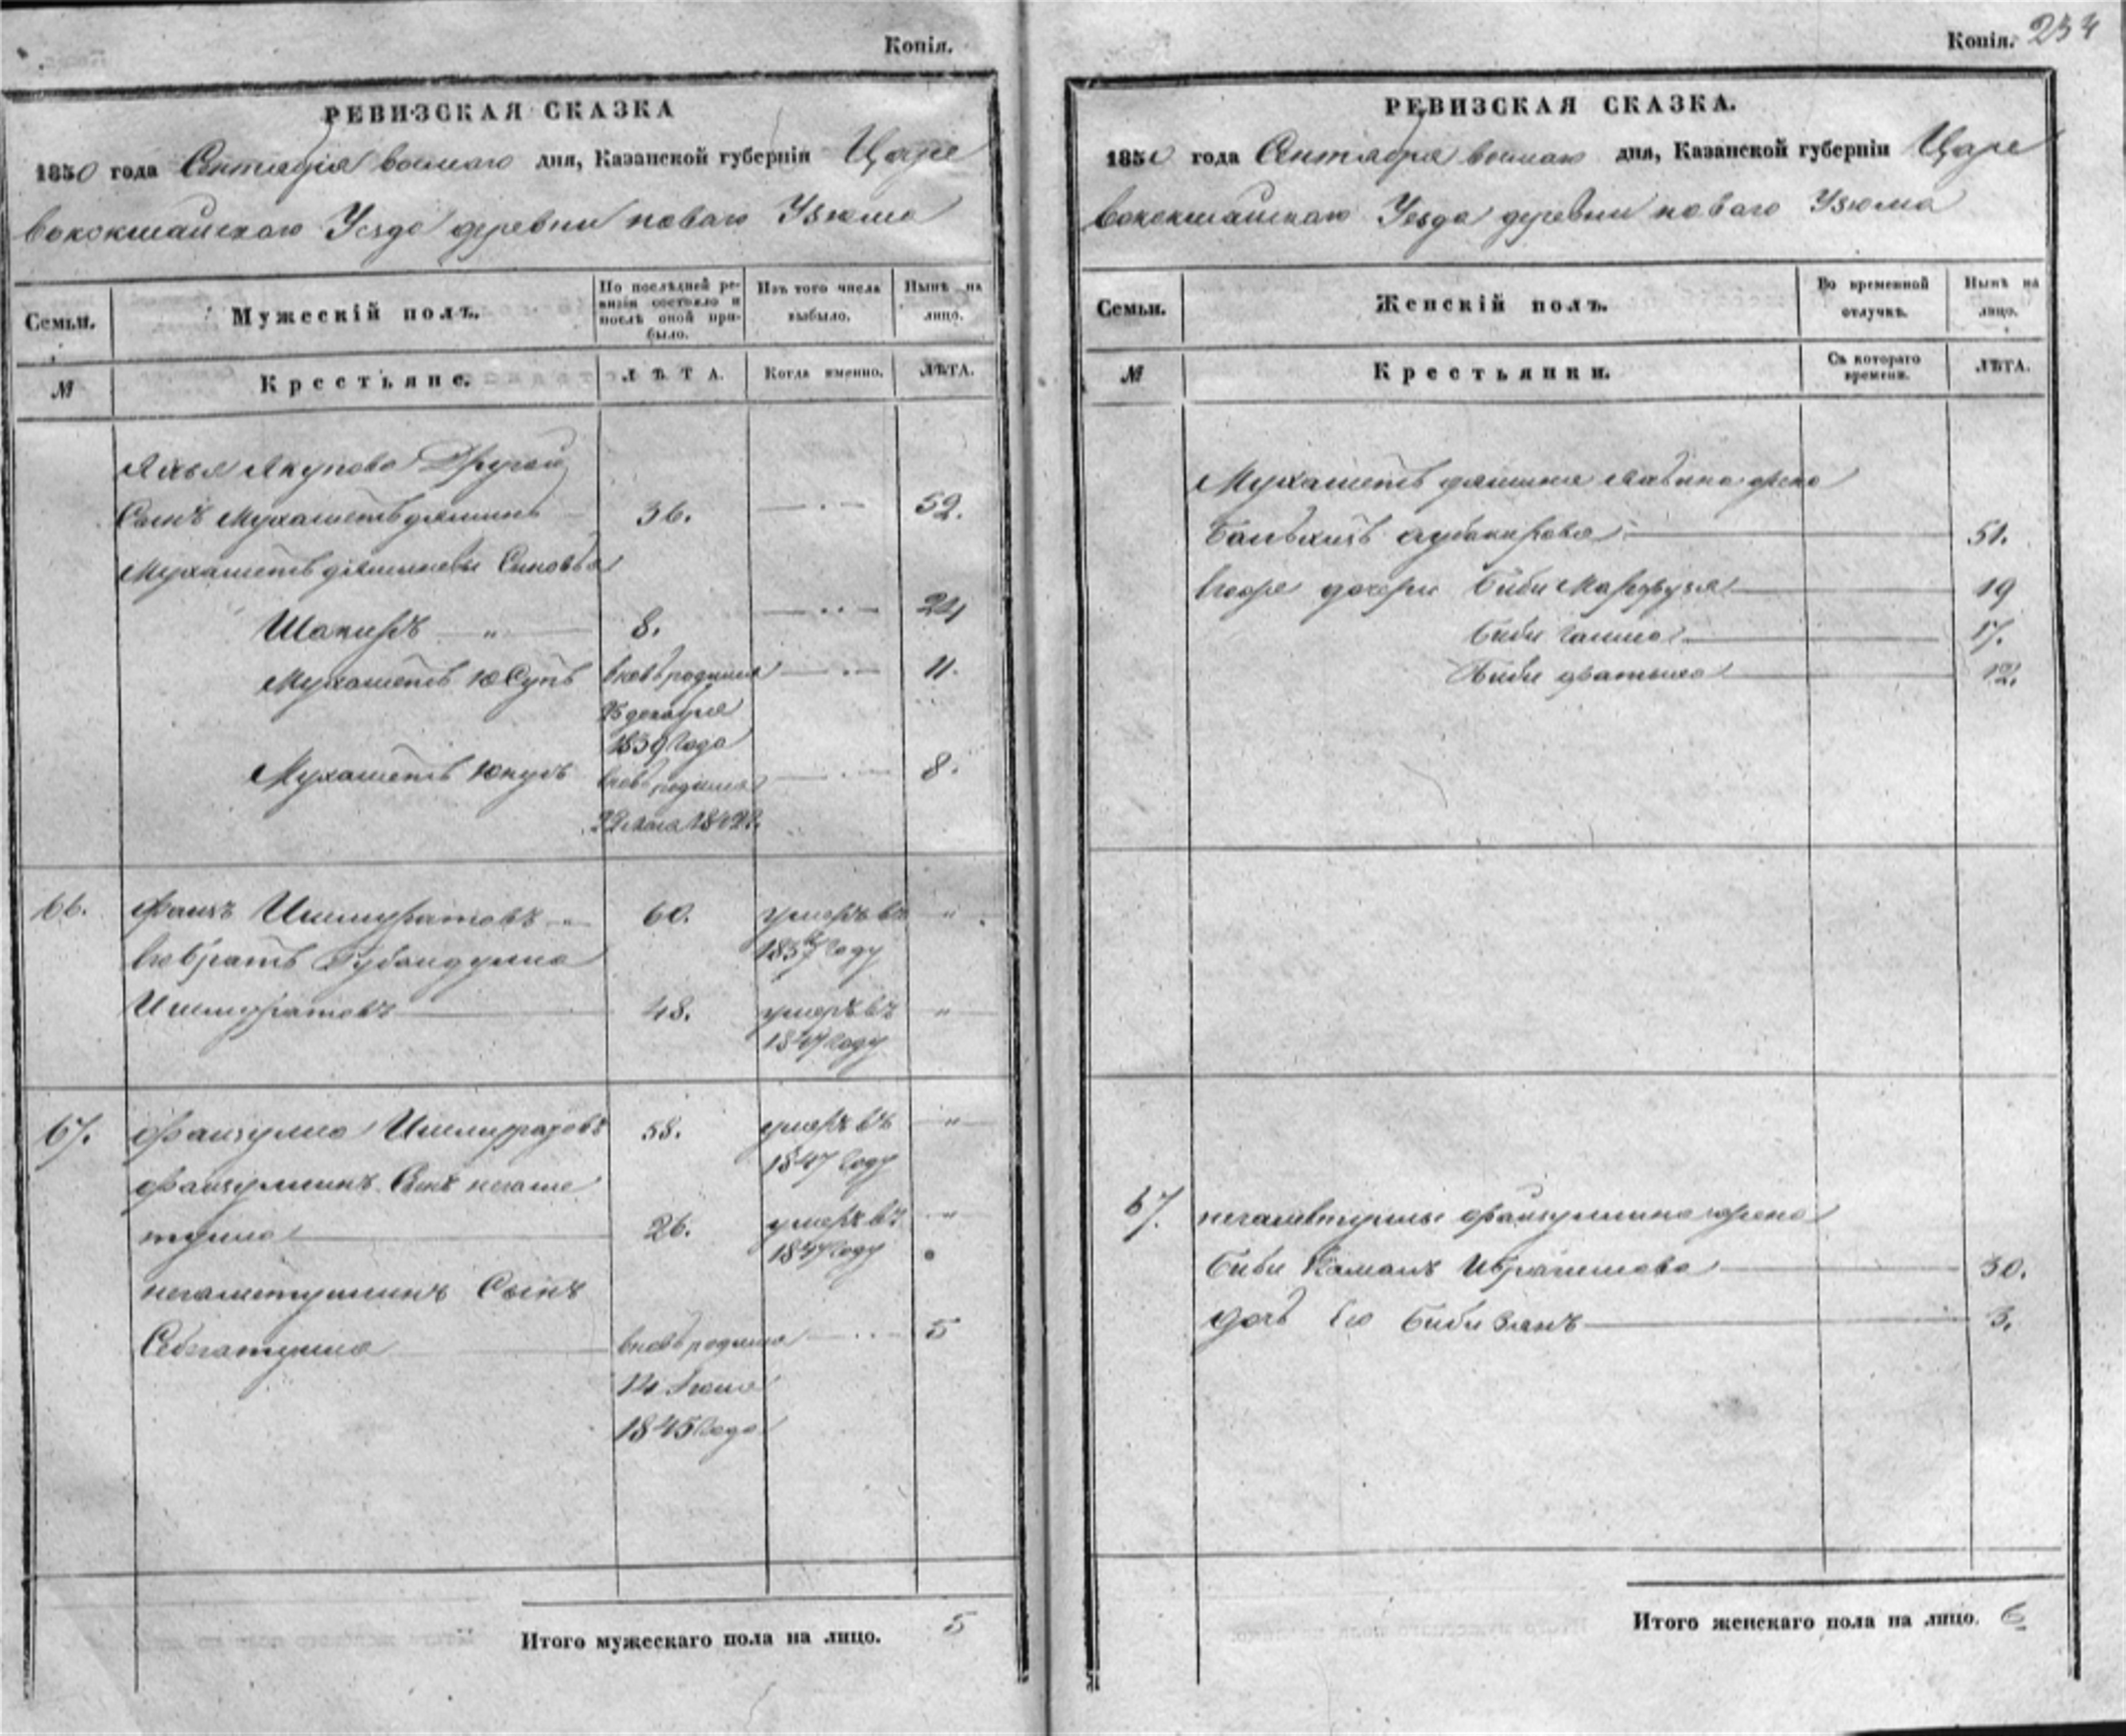 Копія.
РЕВИЗСКАЯ СКАЗКА
1850 года Сентября восмаго дня, Казанской губерніи Царе
вококшайскаго Уезда деревни новаго Узюма
Семьи.
Мужескій полъ.
По послѣдней ре-
визіи состояло и
послѣ оной при-
было.
Изъ того числа
выбыло.
Нынѣ на
лицо.
№
Крестьяне.
ЛѢТА.
Когда именно.
ЛѢТА.
Якупова Другой
Сынъ Мухаметь 36. 52.
Мухаметь Сыновья
Шакиръ " 8. 24
Мухаметь Юсупъ вновь родился 11.
25 декабря
1839 года
Мухаметь Якупъ вновь родился 8.
22 1842
66. Фаизъ Ишмуратовъ " 60. умеръ въ "
1837 году
его братъ Губайдулла
Ишмуратовъ 48. умеръ въ "
1847 году
67. Файзулла Ишмуратовъ 58. умеръ въ "
1847 году
Файзуллинъ Сынъ негаме
тулла 26. умеръ въ "
1847 году
негаметуллинъ Сынъ
Себгатулла вновь родился 5
14 Июня
1845 года
Итого мужескаго пола на лицо. 5
Копія. 234
РЕВИЗСКАЯ СКАЗКА.
1850 года Сентября восмаго дня, Казанской губерніи Царе
вококшайскаго Уезда деревни новаго Узюма
Семьи.
Женскій полъ.
Во временной
отлучкѣ.
Нынѣ на
лицо.
№
Крестьянки.
Съ котораго
времени.
ЛѢТА.
Мухаметь жена
51.
его дочери Биби 19
Биби 17.
Биби фатыма 12.
67. негаметуллы Файзуллина жена
Биби Камалъ Ибрагимова 30.
дочь его Биби Занъ 3.
Итого женскаго пола на лицо. 6